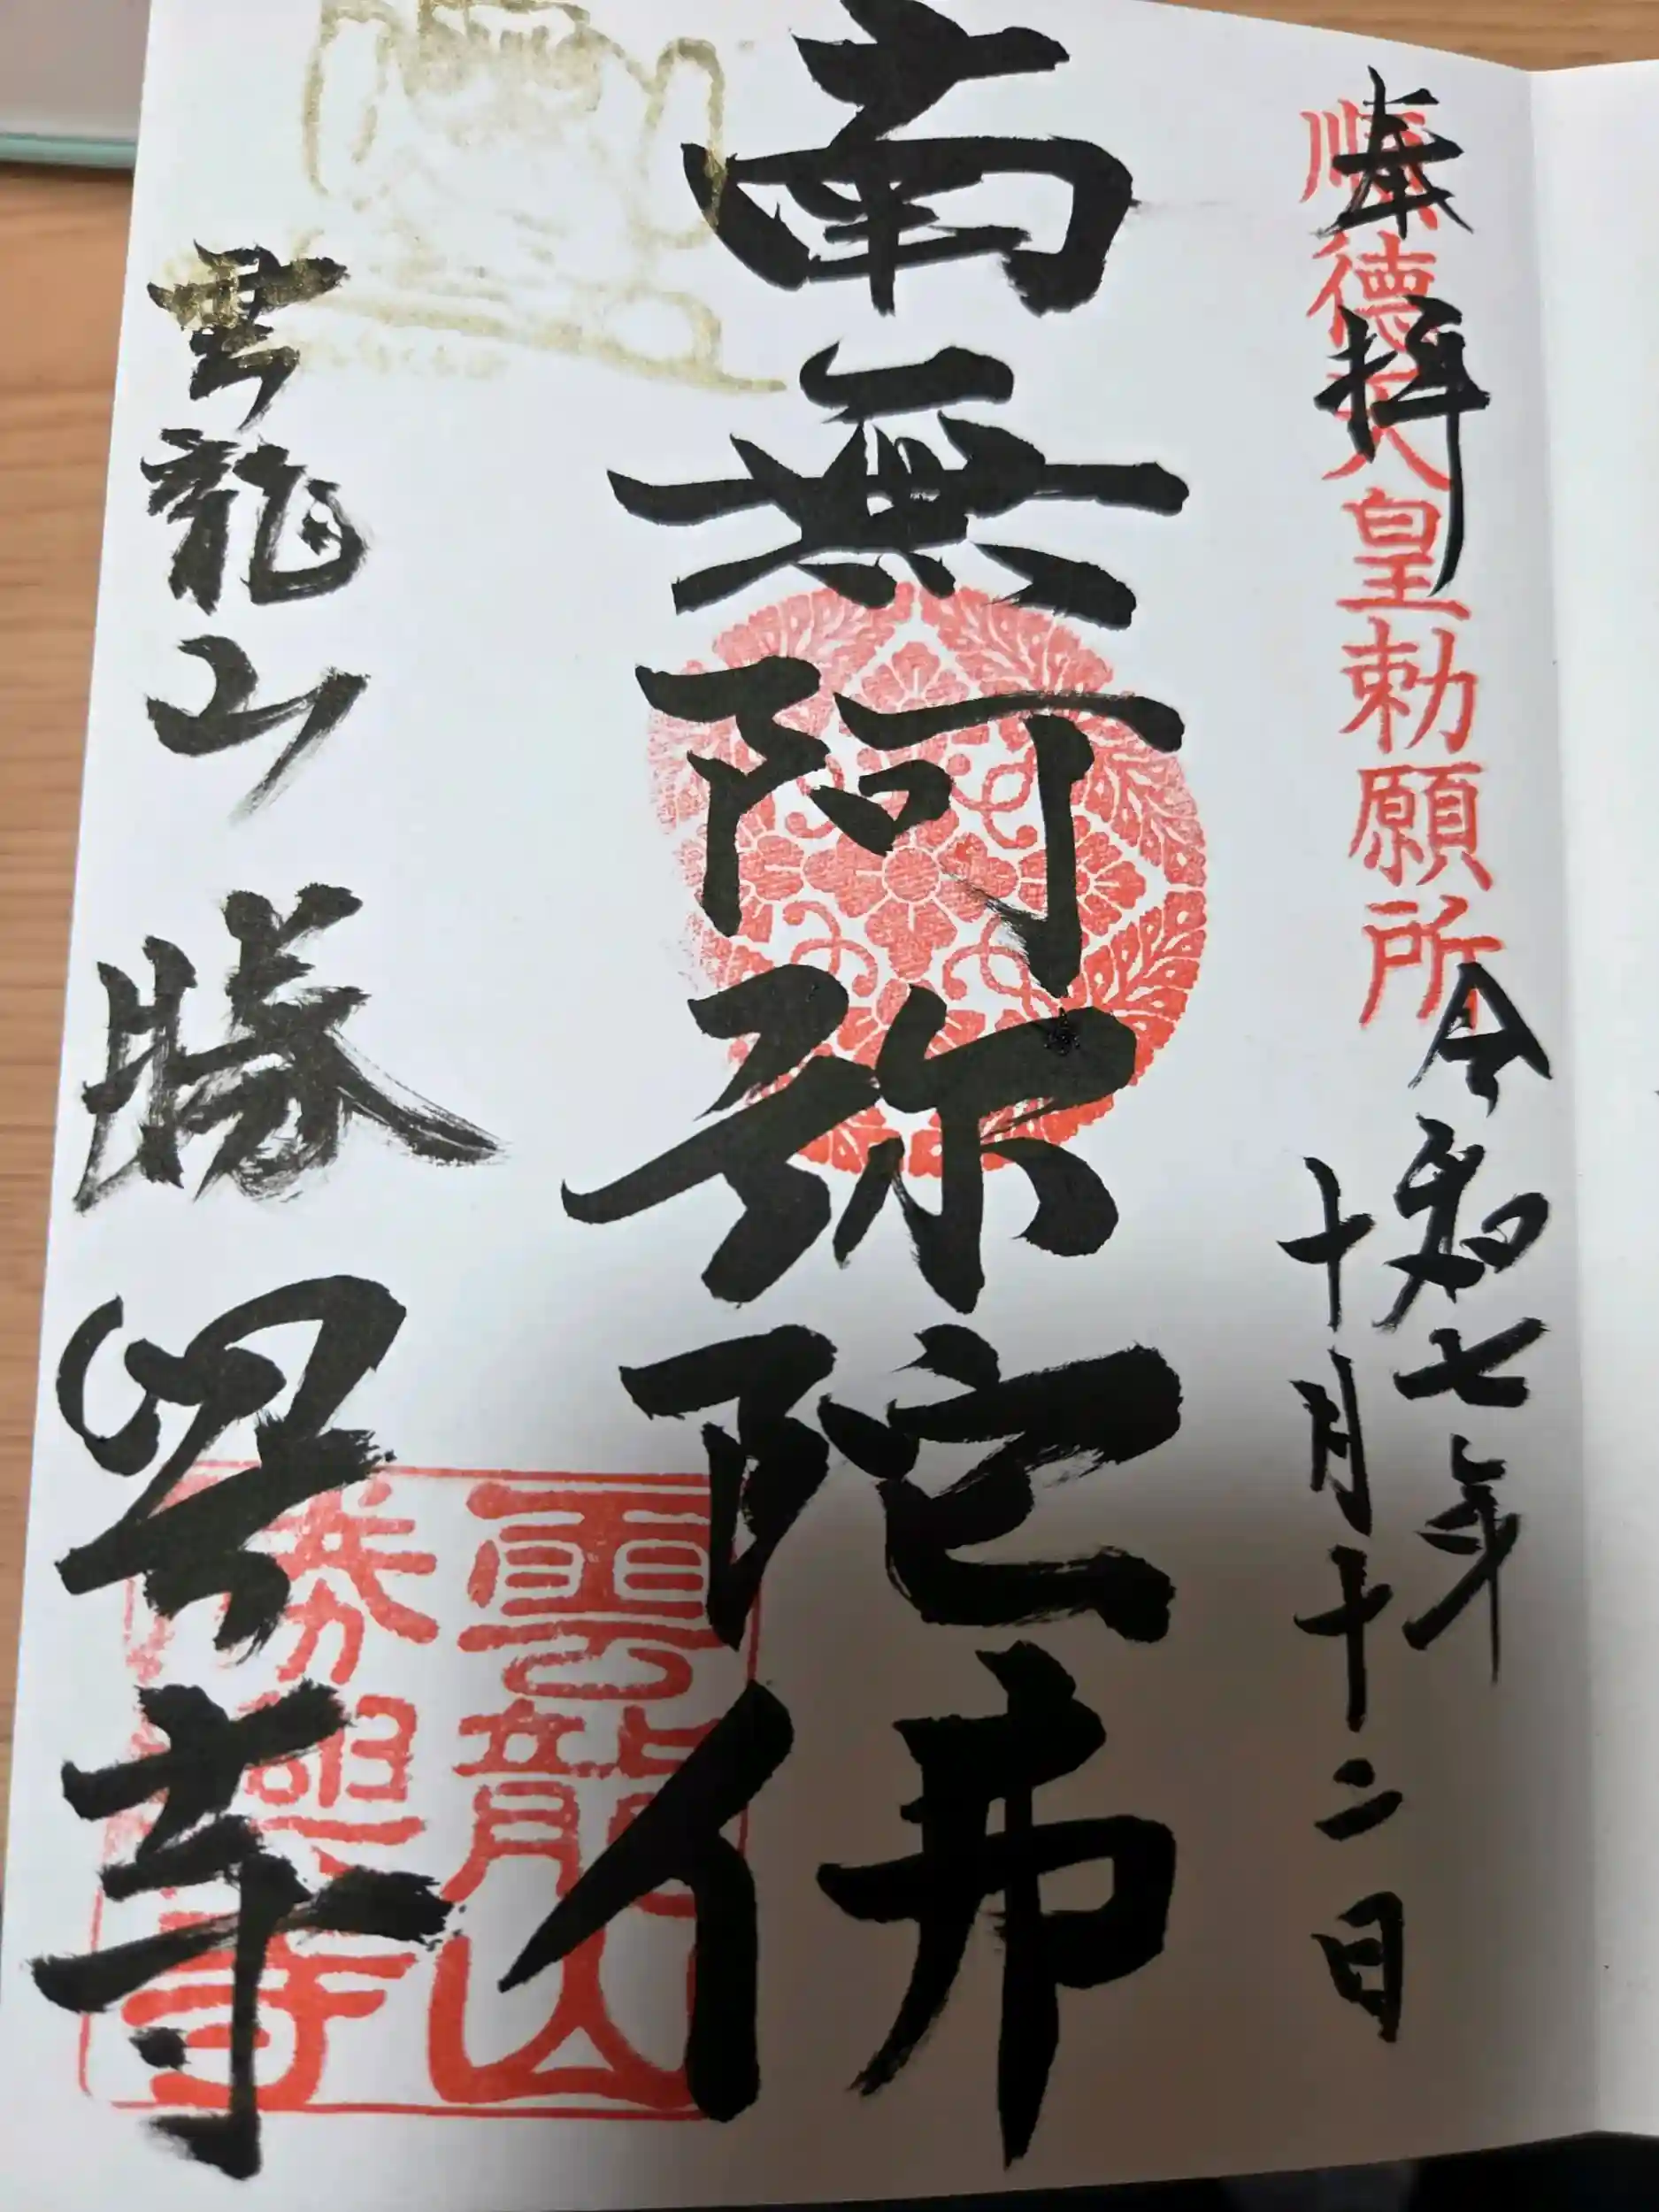 奉拝
順徳天皇勅願所
令和七年
十月十二日
南無阿弥陀佛
雲龍山 勝興寺
雲龍山
勝興寺